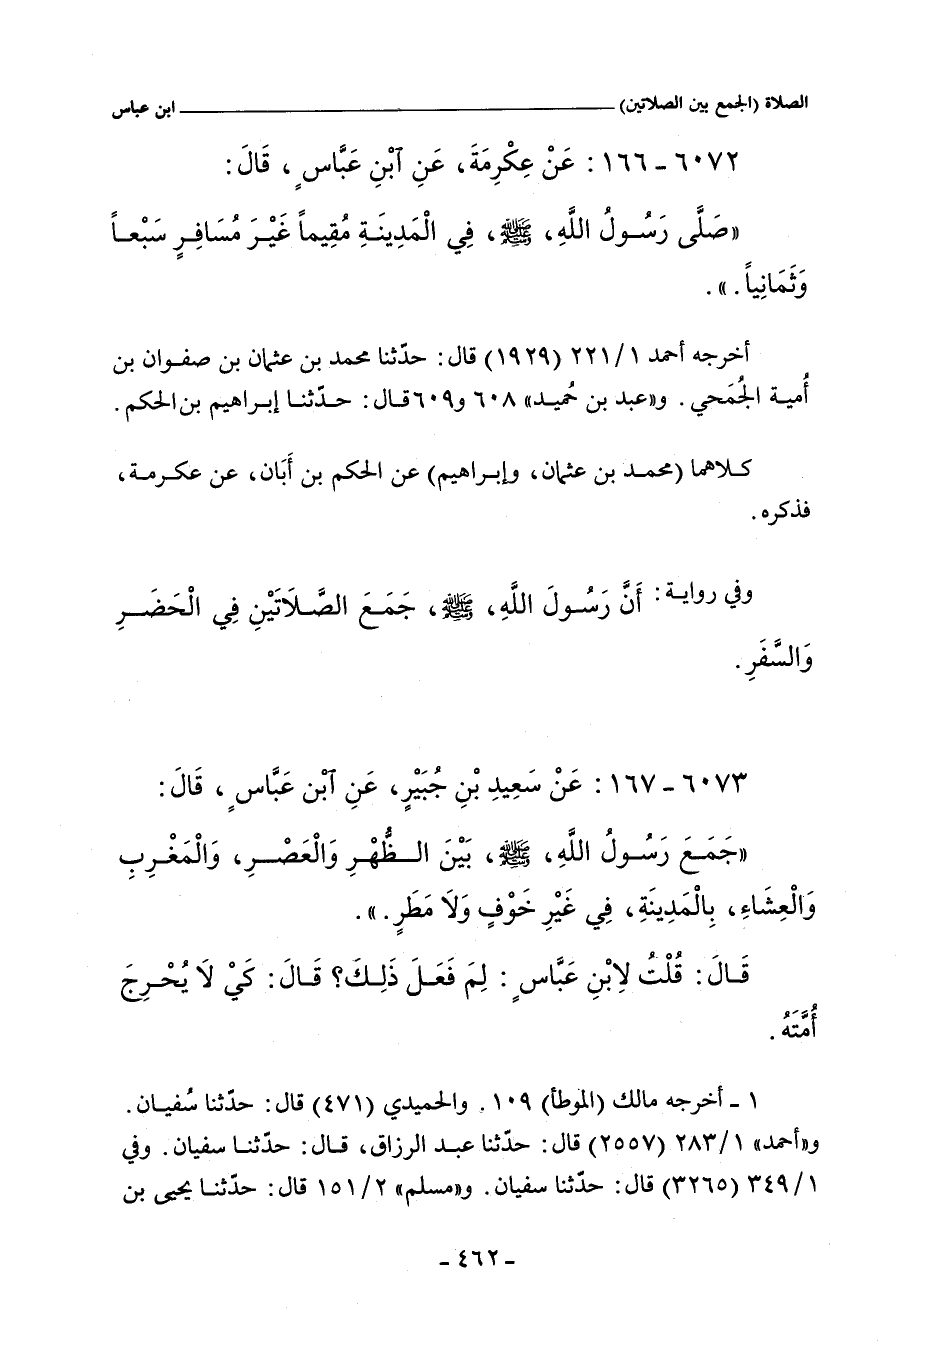 الصلاة (الجمع بين الصلاتين) ــــــــــــــــ ابن عباس
٦٠٧٢ - ١٦٦ : عَنْ عِكْرِمَةَ، عَنِ ٱبْنِ عَبَّاسٍ ، قَالَ :
«صَلَّى رَسُولُ اللَّهِ، ﷺ، فِي الْمَدِينَةِ مُقِيماً غَيْرَ مُسَافِرٍ سَبْعاً
وَثَمَانِياً . » .
أخرجه أحمد ٢٢١/١ (١٩٢٩) قال : حدّثنا محمد بن عثمان بن صفوان بن
أُمية الجُمَحي . و«عبد بن حُميد» ٦٠٨ و٦٠٩ قال : حدّثنا إبراهيم بن الحكم .
كلاهما (محمد بن عثمان، وإبراهيم) عن الحكم بن أَبَان، عن عكرمة،
فذكره .
وفي رواية : أَنَّ رَسُولَ اللَّهِ، ﷺ، جَمَعَ الصَّلَاتَيْنِ فِي الْحَضَرِ
وَالسَّفَرِ .
٦٠٧٣ - ١٦٧ : عَنْ سَعِيدِ بْنِ جُبَيْرٍ، عَنِ ٱبْنِ عَبَّاسٍ ، قَالَ :
«جَمَعَ رَسُولُ اللَّهِ، ﷺ، بَيْنَ الظُّهْرِ وَالْعَصْرِ، وَالْمَغْرِبِ
وَالْعِشَاءِ، بِالْمَدِينَةِ، فِي غَيْرِ خَوْفٍ وَلَا مَطَرٍ . » .
قَالَ : قُلْتُ لِابْنِ عَبَّاسٍ : لِمَ فَعَلَ ذَلِكَ؟ قَالَ : كَيْ لَا يُحْرِجَ
أُمَّتَهُ .
١ - أخرجه مالك (الموطأ) ١٠٩ . والحميدي (٤٧١) قال : حدّثنا سُفيان .
و«أحمد» ٢٨٣/١ (٢٥٥٧) قال : حدّثنا عبد الرزاق، قال : حدّثنا سفيان . وفي
٣٤٩/١ (٣٢٦٥) قال : حدّثنا سفيان . و«مسلم» ١٥١/٢ قال : حدّثنا يحيى بن
- ٤٦٢ -